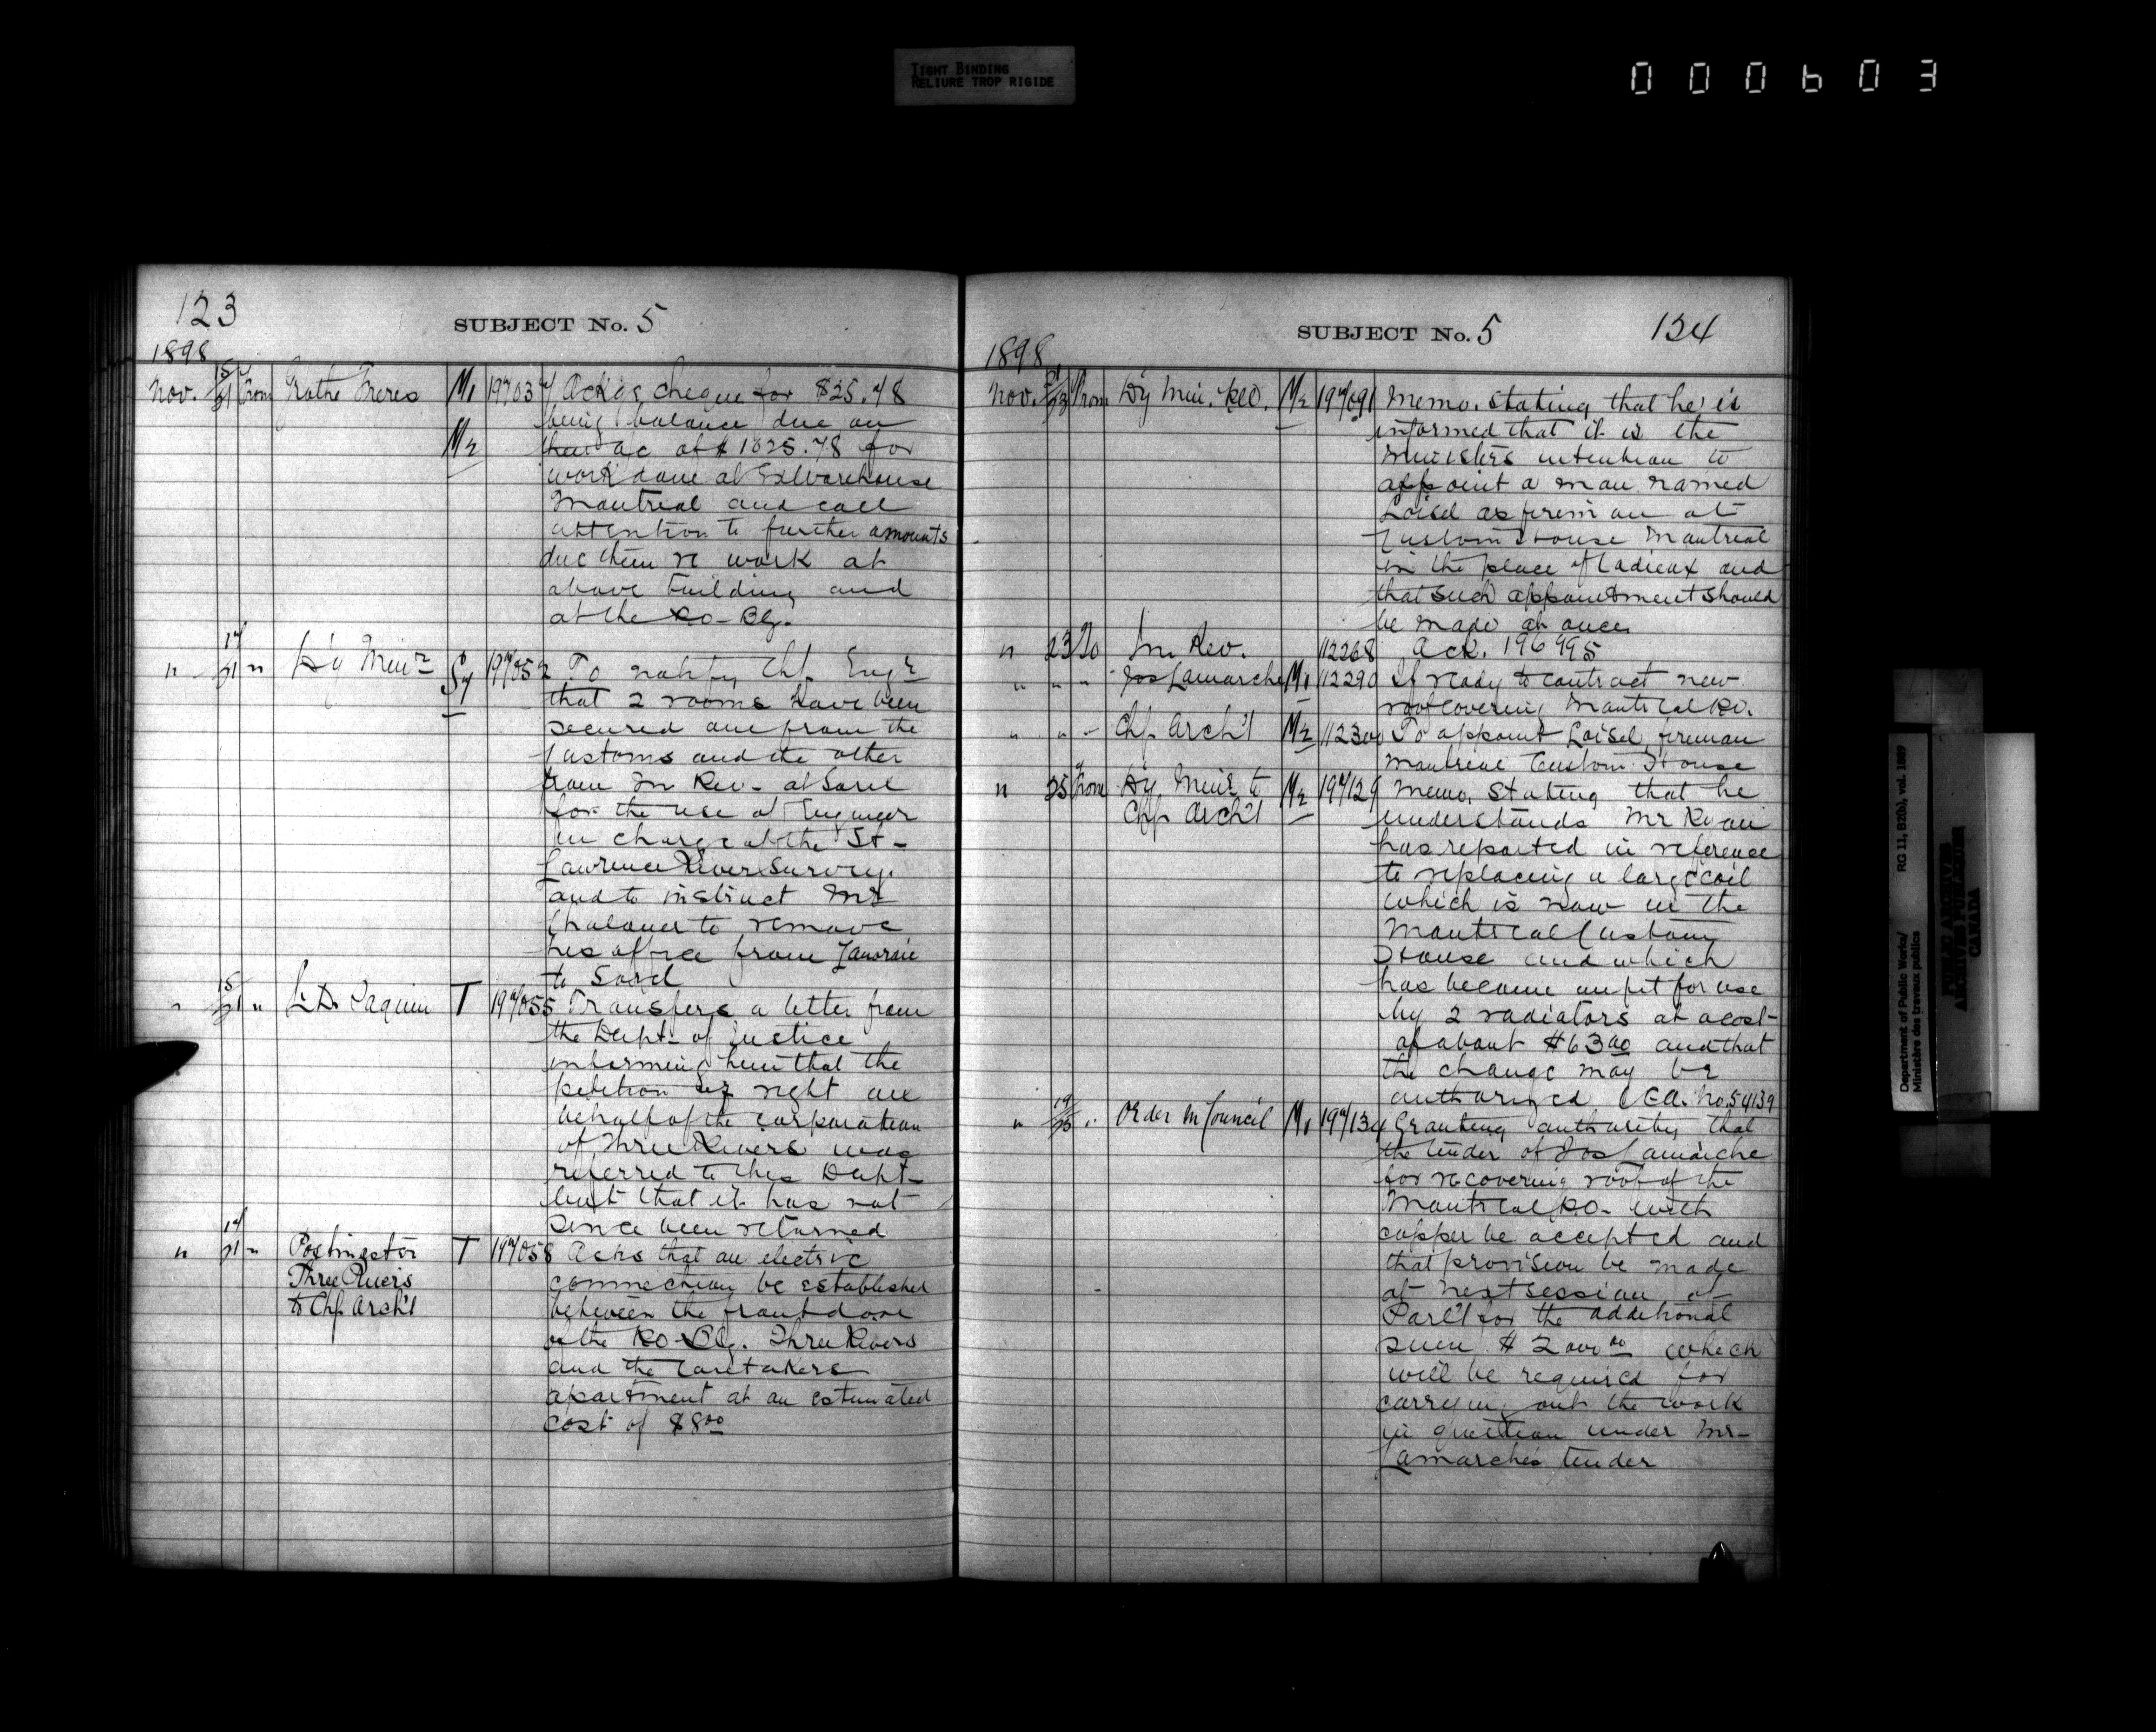 TIGHT BINDING
RELIURE TROP RIGIDE
000603
123
SUBJECT No. 5
1898
Nov. 15/21 From Grothe Freres M1 197037 Ack'gs cheque for $25.78
being balance due on
M2 their a/c of $1625.78 for
work done at Ex Warehouse
Montreal and call
attention to further amounts
due them re work at
above building and
at the P.O. Blg.
" 17/21 " Dy Minr Sy 197052 To notify Chf. Engr
that 2 rooms have been
secured one from the
Customs and the other
from In Rev. at Sorel
for the use of Engineer
in charge of the St.
Lawrence River Survey.
and to instruct Mr
to remove
his office from Lanoraie
to Sorel
" 15/21 " L. D. Paquin T 197055 Transfers a letter from
the Dept. of Justice
informing him that the
petition of right on
behalf of the corporation
of Three Rivers was
referred to this Dept.
but that it has not
since been returned
" 17/21 " Postmaster T 197058 Asks that an electric
Three Rivers connection be established
to Chf. Arch't between the front door
of the P.O. Blg. Three Rivers
and the caretakers
apartment at an estimated
cost of $8.00
SUBJECT No. 5
124
1898
Nov. 21/23 From Dy Min. P.O. M2 197091 Memo. stating that he is
informed that it is the
Ministers intention to
appoint a man named
Loisel as fireman at
Custom House Montreal
in the place of Cadieux and
that such appointment should
be made at once.
" 23 To In. Rev. 112268 Ack. 196995
" " " Jos Lamarche M1 112290 If ready to contract new
roof covering Montreal P.O.
" " " Chf Arch't M2 112300 To appoint Loisel, fireman
Montreal Custom House
" 25 From Dy Minr to M2 197129 Memo. stating that he
Chf Arch't understands Mr
has reported in reference
to replacing a large coil
which is now in the
Montreal Custom
House and which
has become unfit for use
by 2 radiators at a cost
of about $63.00 and that
the change may be
authorized (C.A. No. 54139
" 19/25 " Order in Council M1 197134 Granting authority that
the tender of Jos Lamarche
for recovering roof of the
Montreal P.O. with
copper be accepted and
that provision be made
at next session of
Parl't for the additional
sum $2000.00 which
will be required for
carrying out the work
in question under Mr.
Lamarche's tender
Department of Public Works/ RG 11, B2(b), vol. 1889
Ministère des travaux publics
PUBLIC ARCHIVES
ARCHIVES PUBLIQUES
CANADA